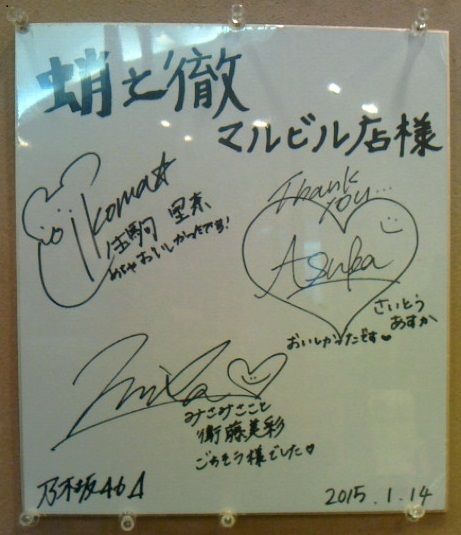 蛸之徹
マルビル店様
ikoma☆
生駒 里奈
めちゃおいしかったです!
Thank
you...
Asuka
さいとう
あすか
おいしかったです♡
みさみさこと
衛藤美彩
ごちそう様でした♡
乃木坂46
2015.1.14